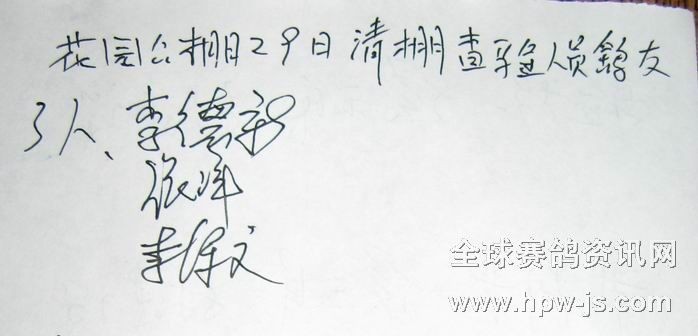 花园公棚29日清棚查验人员鸽友
3人、李德新
张军
李保文
全球赛鸽资讯网
www.hpw-js.com